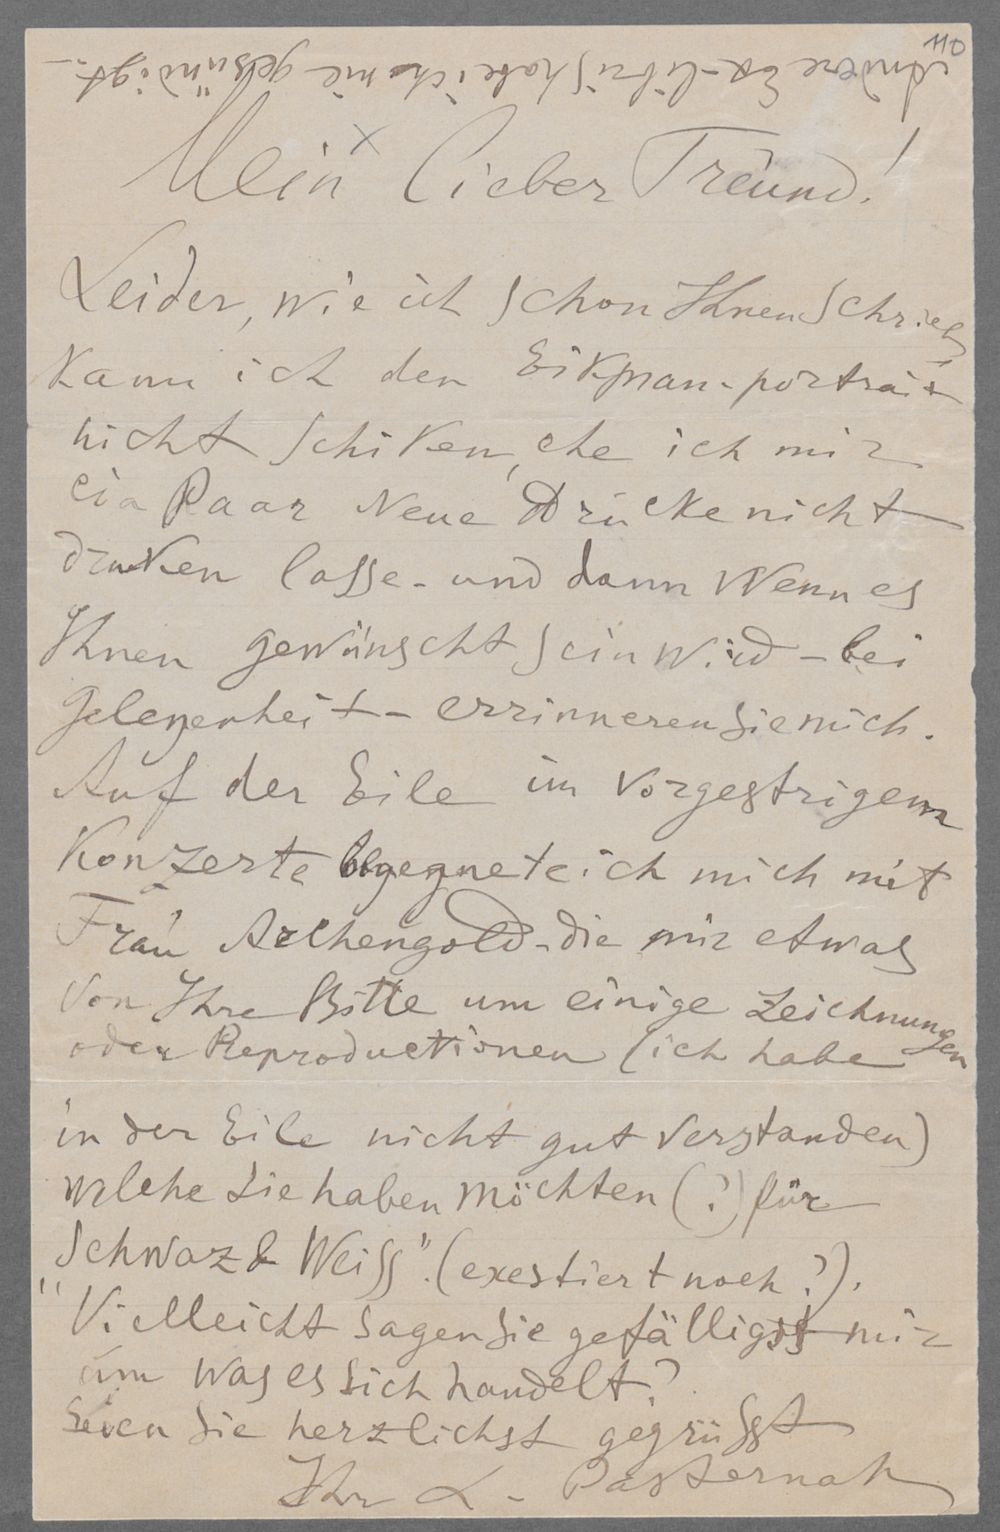 110
Andere Ex-libris habe ich nie gesündigt.-
Mein x lieber Freund!
Leider, wie ich schon Ihnen schrieb,
kann ich den Eikman-porträt
nicht schiken, ehe ich mir
ein Paar Neue Drücke nicht
druken lasse - und dann Wenn es
Ihnen gewünscht sein wird - bei
gelegenheit - errinneren Sie mich.
Auf der Eile im vorgestrigem
Konzerte begegnete ich mich mit
Frau Archengold - die mir etwas
von Ihre Bitte um einige Zeichnungen
oder Reproductionen (ich habe
in der Eile nicht gut verstanden)
welche Sie haben möchten (?) für
"Schwaz & Weiss". (exestiert noch?).
Vielleicht sagen Sie gefälligst mir
um was es sich handelt?
Seien Sie herzlichst gegrüsst
Ihr L. Pasternak